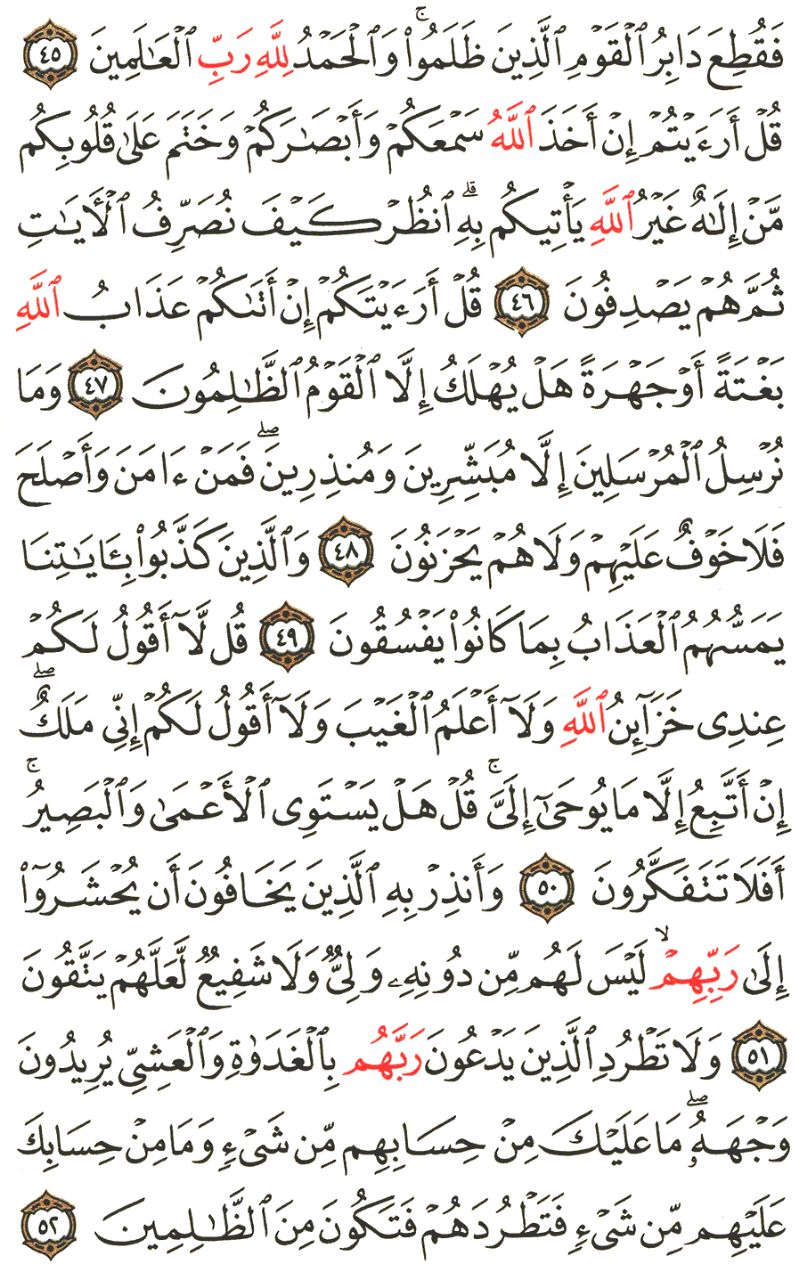 فَقُطِعَ دَابِرُ ٱلْقَوْمِ ٱلَّذِينَ ظَلَمُوا۟ ۚ وَٱلْحَمْدُ لِلَّهِ رَبِّ ٱلْعَـٰلَمِينَ ٤٥
قُلْ أَرَءَيْتُمْ إِنْ أَخَذَ ٱللَّهُ سَمْعَكُمْ وَأَبْصَـٰرَكُمْ وَخَتَمَ عَلَىٰ قُلُوبِكُم
مَّنْ إِلَـٰهٌ غَيْرُ ٱللَّهِ يَأْتِيكُم بِهِ ۗ ٱنظُرْ كَيْفَ نُصَرِّفُ ٱلْـَٔايَـٰتِ
ثُمَّ هُمْ يَصْدِفُونَ ٤٦ قُلْ أَرَءَيْتَكُمْ إِنْ أَتَىٰكُمْ عَذَابُ ٱللَّهِ
بَغْتَةً أَوْ جَهْرَةً هَلْ يُهْلَكُ إِلَّا ٱلْقَوْمُ ٱلظَّـٰلِمُونَ ٤٧ وَمَا
نُرْسِلُ ٱلْمُرْسَلِينَ إِلَّا مُبَشِّرِينَ وَمُنذِرِينَ ۖ فَمَنْ ءَامَنَ وَأَصْلَحَ
فَلَا خَوْفٌ عَلَيْهِمْ وَلَا هُمْ يَحْزَنُونَ ٤٨ وَٱلَّذِينَ كَذَّبُوا۟ بِـَٔايَـٰتِنَا
يَمَسُّهُمُ ٱلْعَذَابُ بِمَا كَانُوا۟ يَفْسُقُونَ ٤٩ قُل لَّآ أَقُولُ لَكُمْ
عِندِى خَزَآئِنُ ٱللَّهِ وَلَآ أَعْلَمُ ٱلْغَيْبَ وَلَآ أَقُولُ لَكُمْ إِنِّى مَلَكٌ ۖ
إِنْ أَتَّبِعُ إِلَّا مَا يُوحَىٰٓ إِلَىَّ ۚ قُلْ هَلْ يَسْتَوِى ٱلْأَعْمَىٰ وَٱلْبَصِيرُ ۚ
أَفَلَا تَتَفَكَّرُونَ ٥٠ وَأَنذِرْ بِهِ ٱلَّذِينَ يَخَافُونَ أَن يُحْشَرُوٓا۟
إِلَىٰ رَبِّهِمْ ۙ لَيْسَ لَهُم مِّن دُونِهِۦ وَلِىٌّ وَلَا شَفِيعٌ لَّعَلَّهُمْ يَتَّقُونَ
٥١ وَلَا تَطْرُدِ ٱلَّذِينَ يَدْعُونَ رَبَّهُم بِٱلْغَدَوٰةِ وَٱلْعَشِىِّ يُرِيدُونَ
وَجْهَهُۥ ۖ مَا عَلَيْكَ مِنْ حِسَابِهِم مِّن شَىْءٍ وَمَا مِنْ حِسَابِكَ
عَلَيْهِم مِّن شَىْءٍ فَتَطْرُدَهُمْ فَتَكُونَ مِنَ ٱلظَّـٰلِمِينَ ٥٢